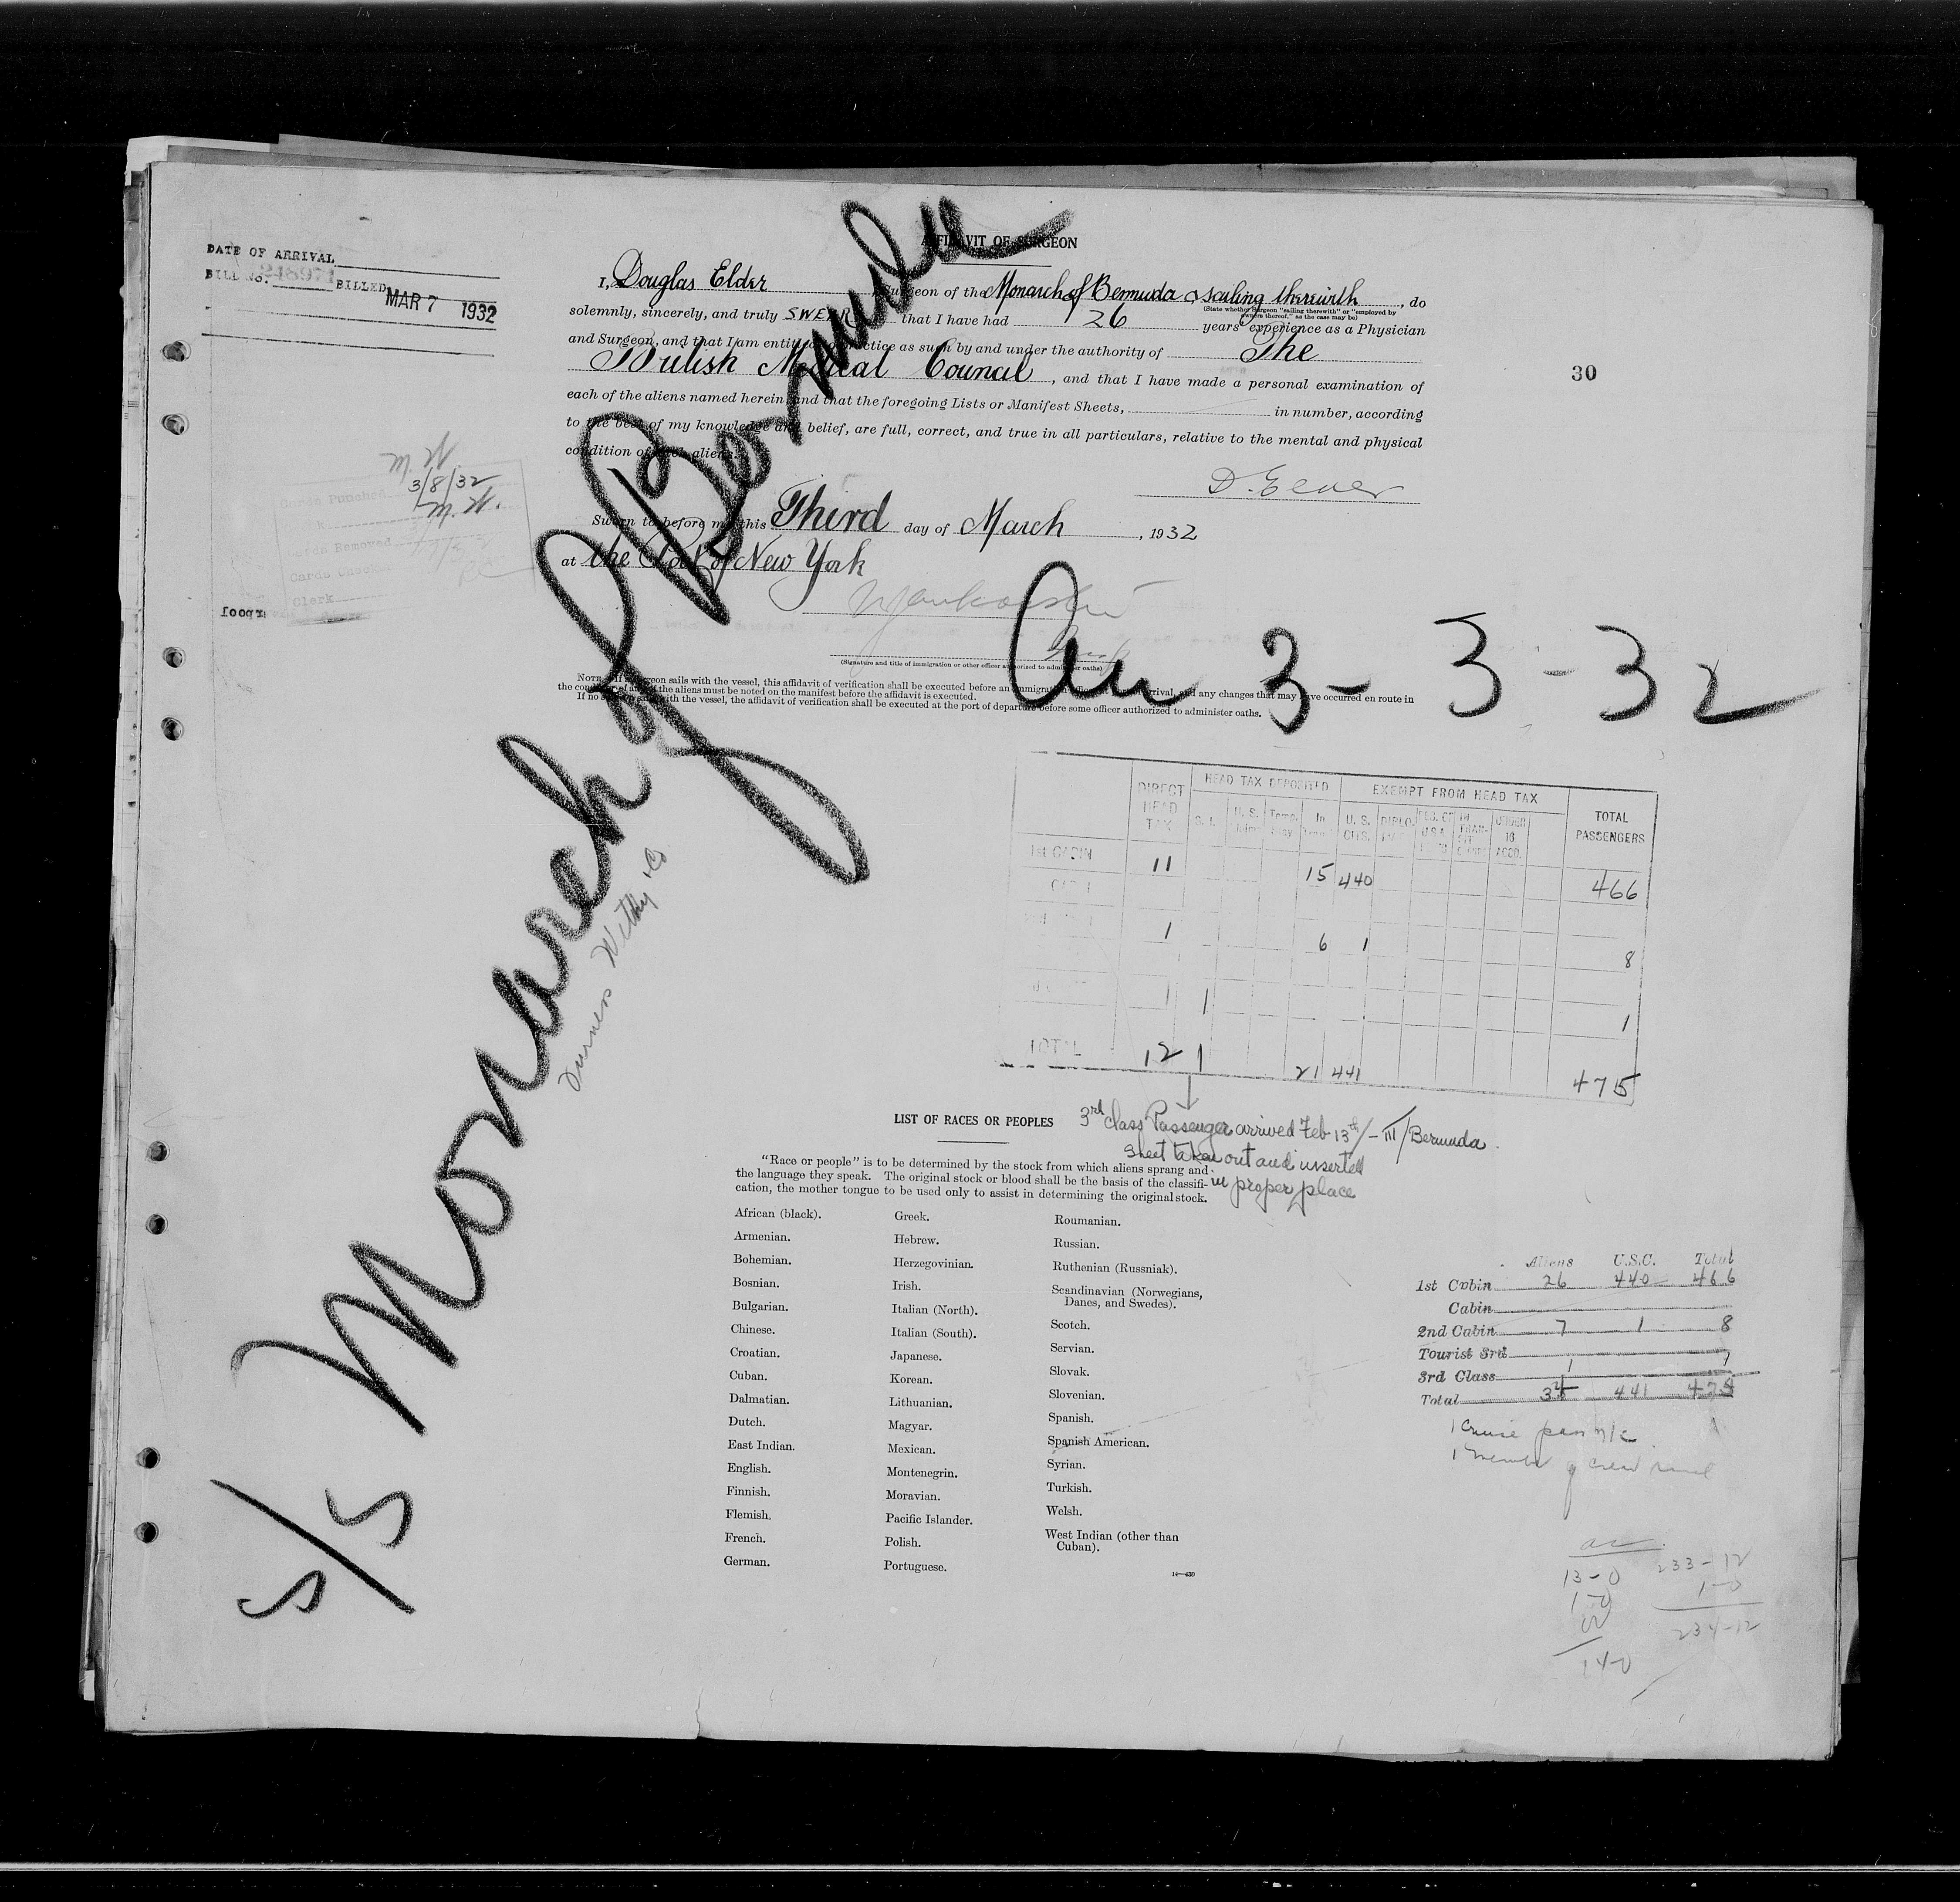 AFFIDAVIT OF SURGEON
DATE OF ARRIVAL
BILL No. 248971 BILLED MAR 7 1932
I, Douglas Elder, Surgeon of the Monarch of Bermuda & sailing therewith, do
(State whether Surgeon "sailing therewith" or "employed by
owners thereof," as the case may be)
solemnly, sincerely, and truly SWEAR that I have had 26 years' experience as a Physician
and Surgeon, and that I am entitled to practice as such by and under the authority of The
British Medical Council, and that I have made a personal examination of
each of the aliens named herein, and that the foregoing Lists or Manifest Sheets, in number, according
to the best of my knowledge and belief, are full, correct, and true in all particulars, relative to the mental and physical
condition of such aliens.
30
D. Elder
Sworn to before me this Third day of March, 1932
at the Port of New York
(Signature and title of immigration or other officer authorized to administer oaths)
Cards Punched
3/8/32
Cards Removed
Cards Checked
Clerk
S/S Monarch of Bermuda
Furness Withy & Co
Arr 3-3-32
NOTE.—If surgeon sails with the vessel, this affidavit of verification shall be executed before an immigration arrival, and any changes that may have occurred en route in
the condition of any of the aliens must be noted on the manifest before the affidavit is executed.
If no surgeon sails with the vessel, the affidavit of verification shall be executed at the port of departure before some officer authorized to administer oaths.
DIRECT HEAD TAX HEAD TAX DEPOSITED EXEMPT FROM HEAD TAX TOTAL PASSENGERS
S. I. U. S. Temp. In U. S. CITS. DIPLO. UNDER 16 ACCO.
1st CABIN 11 15 440 466
1 6 1 8
1 1 1
TOTAL 12 1 21 441 475
3rd class Passenger arrived Feb 13th/-III/Bermuda.
Sheet taken out and inserted
in proper place
LIST OF RACES OR PEOPLES
"Race or people" is to be determined by the stock from which aliens sprang and
the language they speak. The original stock or blood shall be the basis of the classifi-
cation, the mother tongue to be used only to assist in determining the original stock.
African (black).
Armenian.
Bohemian.
Bosnian.
Bulgarian.
Chinese.
Croatian.
Cuban.
Dalmatian.
Dutch.
East Indian.
English.
Finnish.
Flemish.
French.
German.
Greek.
Hebrew.
Herzegovinian.
Irish.
Italian (North).
Italian (South).
Japanese.
Korean.
Lithuanian.
Magyar.
Mexican.
Montenegrin.
Moravian.
Pacific Islander.
Polish.
Portuguese.
Roumanian.
Russian.
Ruthenian (Russniak).
Scandinavian (Norwegians,
Danes, and Swedes).
Scotch.
Servian.
Slovak.
Slovenian.
Spanish.
Spanish American.
Syrian.
Turkish.
Welsh.
West Indian (other than
Cuban).
Aliens U.S.C. Total
1st Cabin 26 440 466
Cabin
2nd Cabin 7 1 8
Tourist 3rd
3rd Class 1 1
Total 34 441 475
1 Cruise pass
1 member of crew
233-12
13-0 1-0
1-0 234-12
14-0